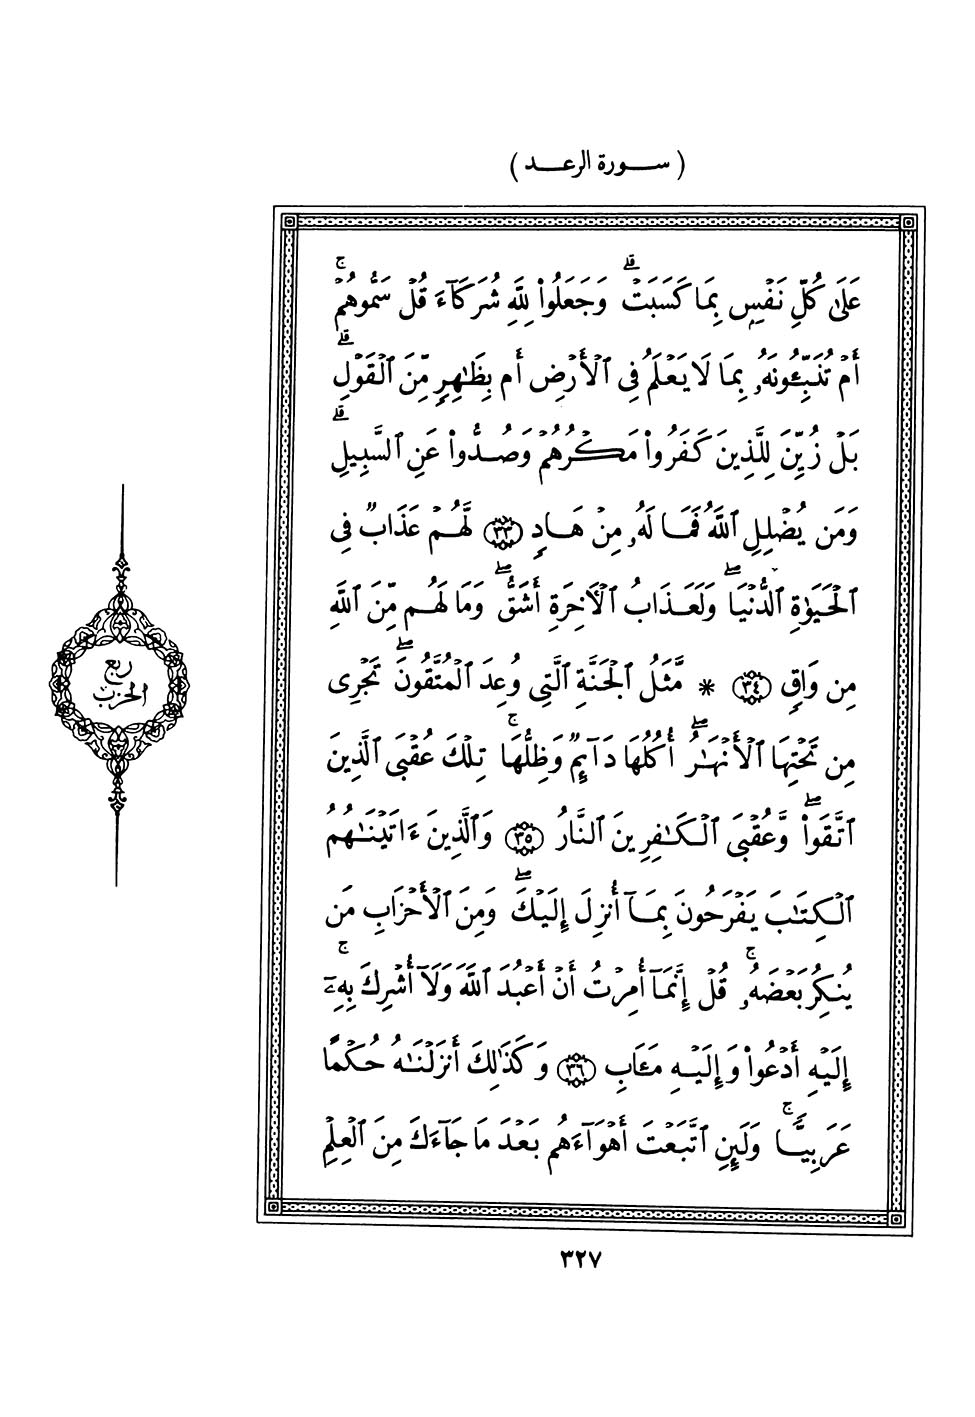 ( سورة الرعد )
عَلَىٰ كُلِّ نَفْسٍ بِمَا كَسَبَتْ ۗ وَجَعَلُوا۟ لِلَّهِ شُرَكَآءَ قُلْ سَمُّوهُمْ ۚ
أَمْ تُنَبِّـُٔونَهُۥ بِمَا لَا يَعْلَمُ فِى ٱلْأَرْضِ أَم بِظَـٰهِرٍ مِّنَ ٱلْقَوْلِ ۗ
بَلْ زُيِّنَ لِلَّذِينَ كَفَرُوا۟ مَكْرُهُمْ وَصُدُّوا۟ عَنِ ٱلسَّبِيلِ ۗ
وَمَن يُضْلِلِ ٱللَّهُ فَمَا لَهُۥ مِنْ هَادٍ ٣٣ لَّهُمْ عَذَابٌ فِى
ٱلْحَيَوٰةِ ٱلدُّنْيَا ۖ وَلَعَذَابُ ٱلْـَٔاخِرَةِ أَشَقُّ ۖ وَمَا لَهُم مِّنَ ٱللَّهِ
مِن وَاقٍ ٣٤ * مَّثَلُ ٱلْجَنَّةِ ٱلَّتِى وُعِدَ ٱلْمُتَّقُونَ ۖ تَجْرِى
مِن تَحْتِهَا ٱلْأَنْهَـٰرُ ۖ أُكُلُهَا دَآئِمٌ وَظِلُّهَا ۚ تِلْكَ عُقْبَى ٱلَّذِينَ
ٱتَّقَوا۟ ۖ وَّعُقْبَى ٱلْكَـٰفِرِينَ ٱلنَّارُ ٣٥ وَٱلَّذِينَ ءَاتَيْنَـٰهُمُ
ٱلْكِتَـٰبَ يَفْرَحُونَ بِمَآ أُنزِلَ إِلَيْكَ ۖ وَمِنَ ٱلْأَحْزَابِ مَن
يُنكِرُ بَعْضَهُۥ ۚ قُلْ إِنَّمَآ أُمِرْتُ أَنْ أَعْبُدَ ٱللَّهَ وَلَآ أُشْرِكَ بِهِۦٓ ۚ
إِلَيْهِ أَدْعُوا۟ وَإِلَيْهِ مَـَٔابِ ٣٦ وَكَذَٰلِكَ أَنزَلْنَـٰهُ حُكْمًا
عَرَبِيًّا ۚ وَلَئِنِ ٱتَّبَعْتَ أَهْوَآءَهُم بَعْدَ مَا جَآءَكَ مِنَ ٱلْعِلْمِ
ربع
الحزب
٣٢٧